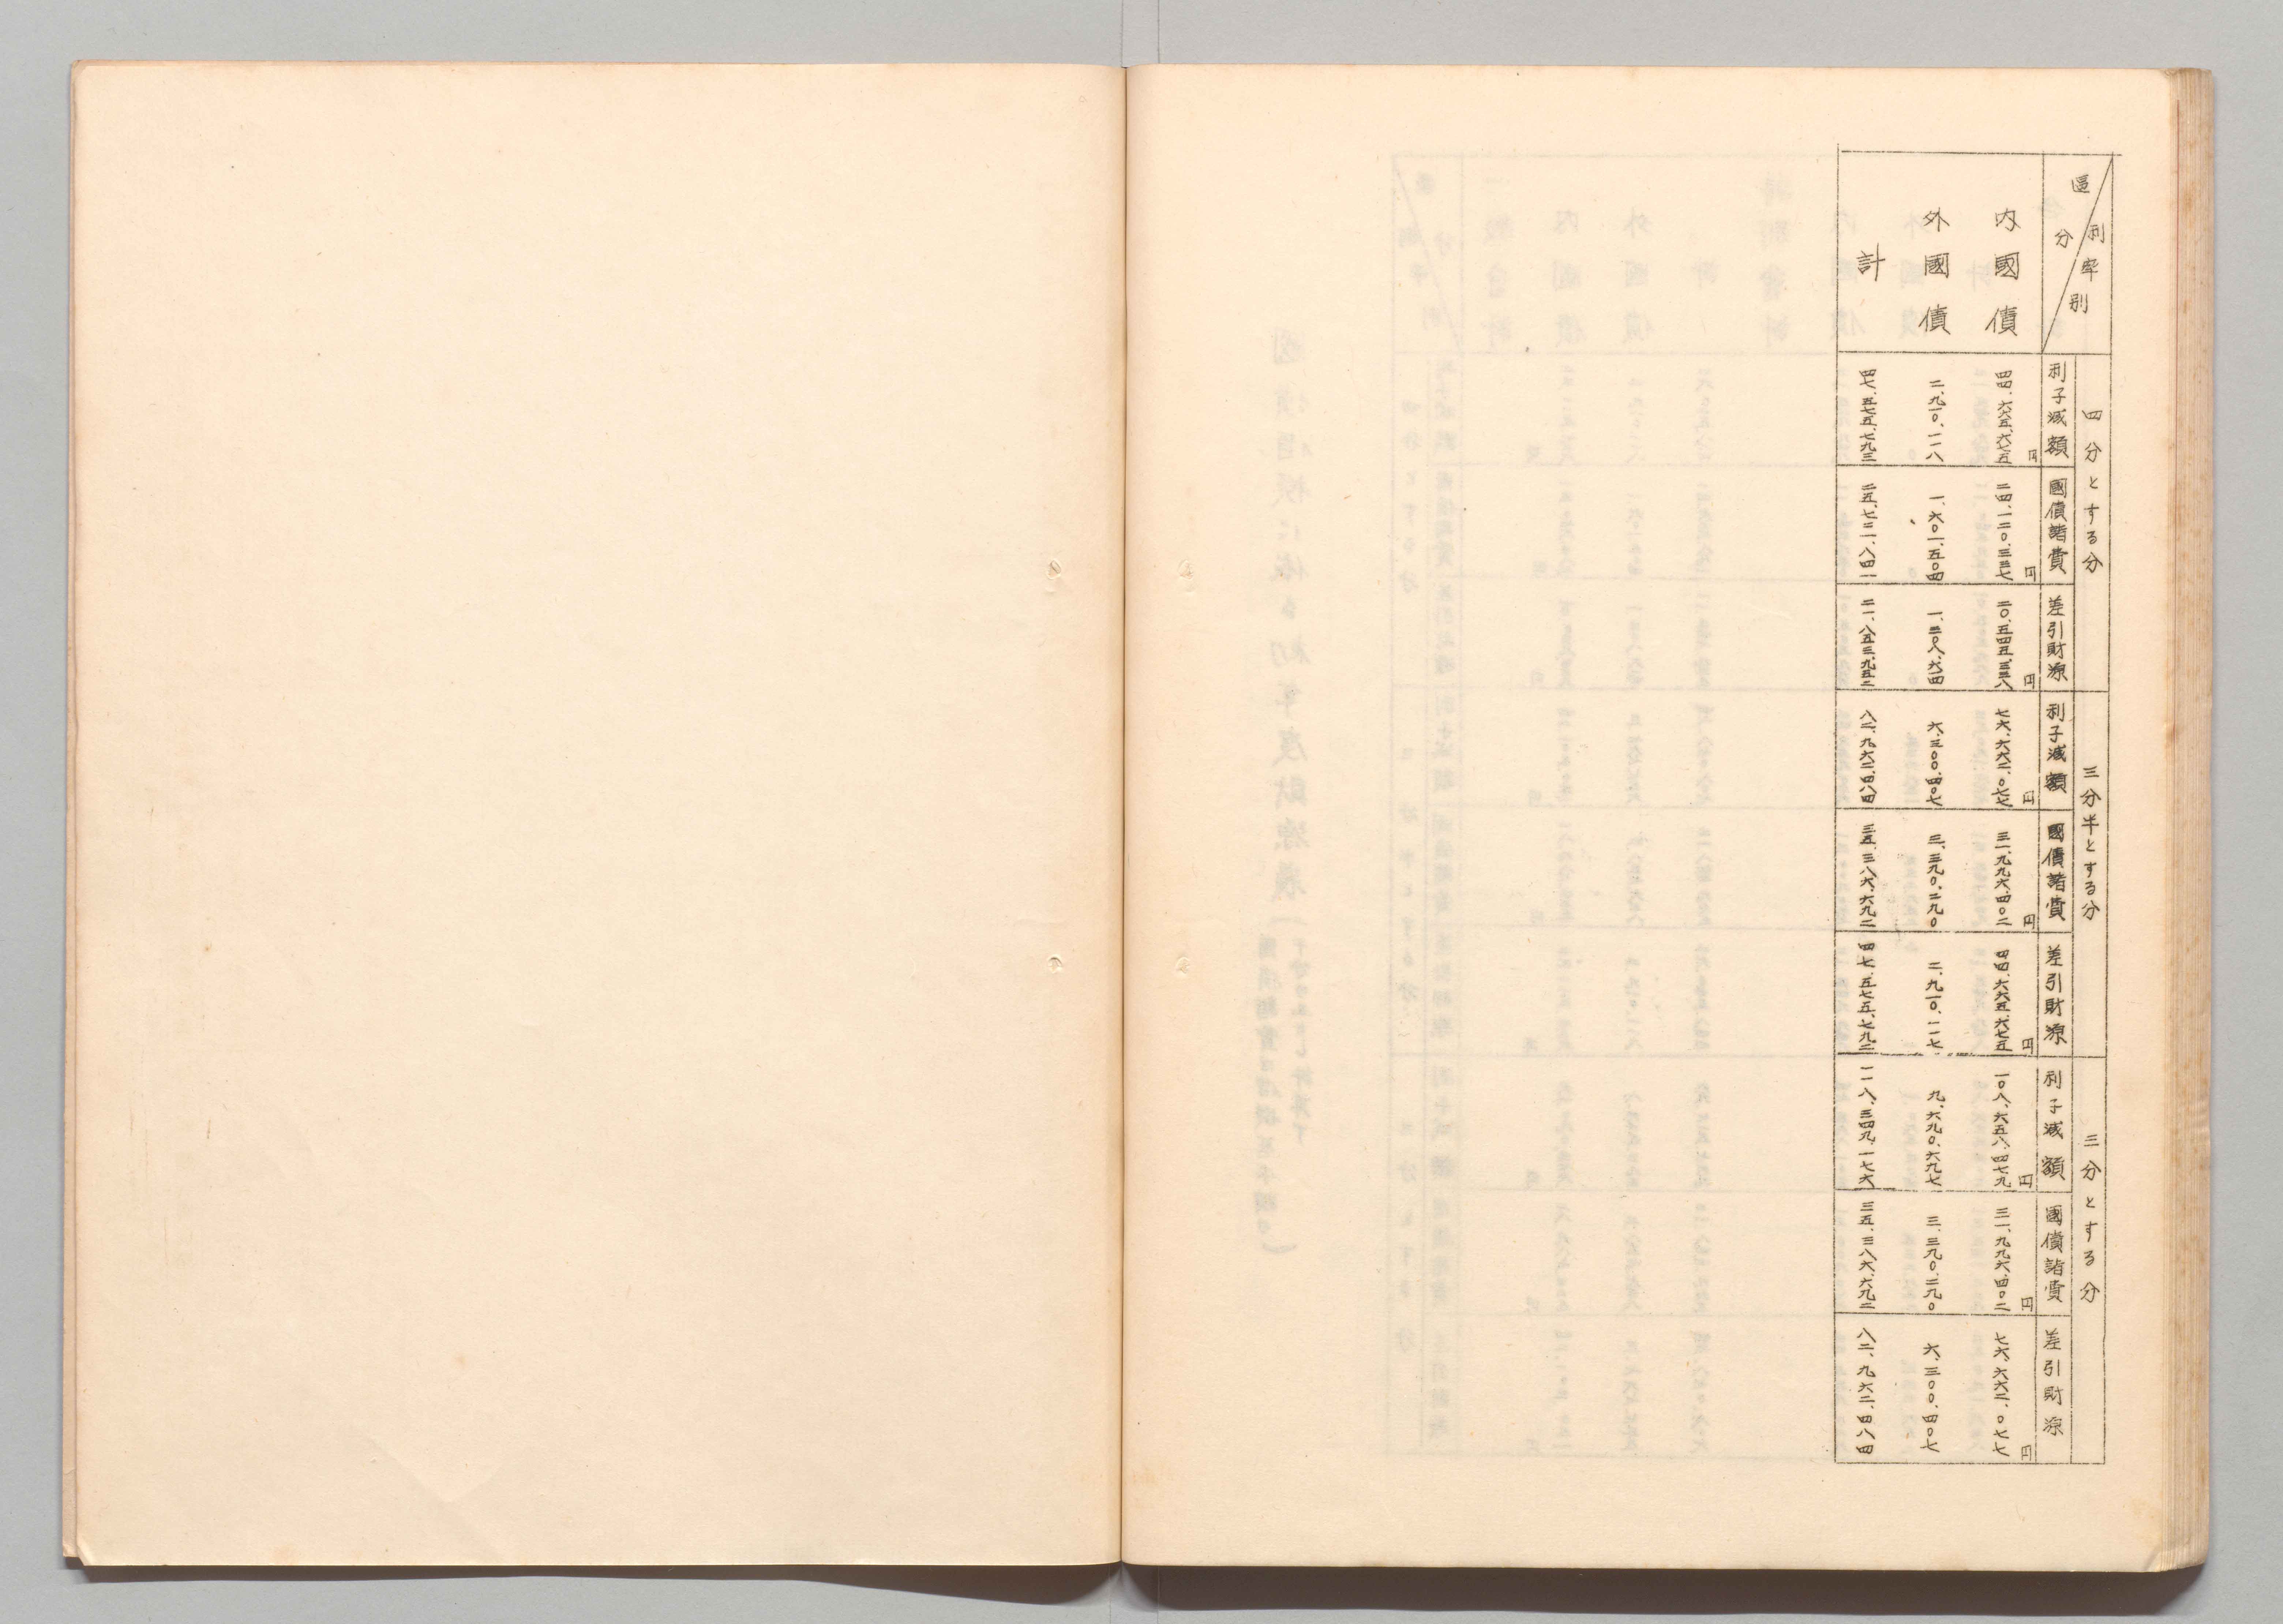 區分 利率別
四分とする分 三分半とする分 三分とする分
利子減額 國債諸費 差引財源 利子減額 國債諸費 差引財源 利子減額 國債諸費 差引財源
円 円 円 円 円 円 円 円 円
内國債 四四、六六五、六七五 二四、一二〇、三三七 二〇、五四五、三三八 七六、六六二、〇七七 三一、九九六、四〇二 四四、六六五、六七五 一〇八、六五八、四七九 三一、九九六、四〇二 七六、六六二、〇七七
外國債 二、九一〇、一一八 一、六〇一、五〇四 一、三〇八、六一四 六、三〇〇、四〇七 三、三九〇、二九〇 二、九一〇、一一七 九、六九〇、六九七 三、三九〇、二九〇 六、三〇〇、四〇七
計 四七、五七五、七九三 二五、七二一、八四一 二一、八五三、九五二 八二、九六二、四八四 三五、三八六、六九二 四七、五七五、七九二 一一八、三四九、一七六 三五、三八六、六九二 八二、九六二、四八四